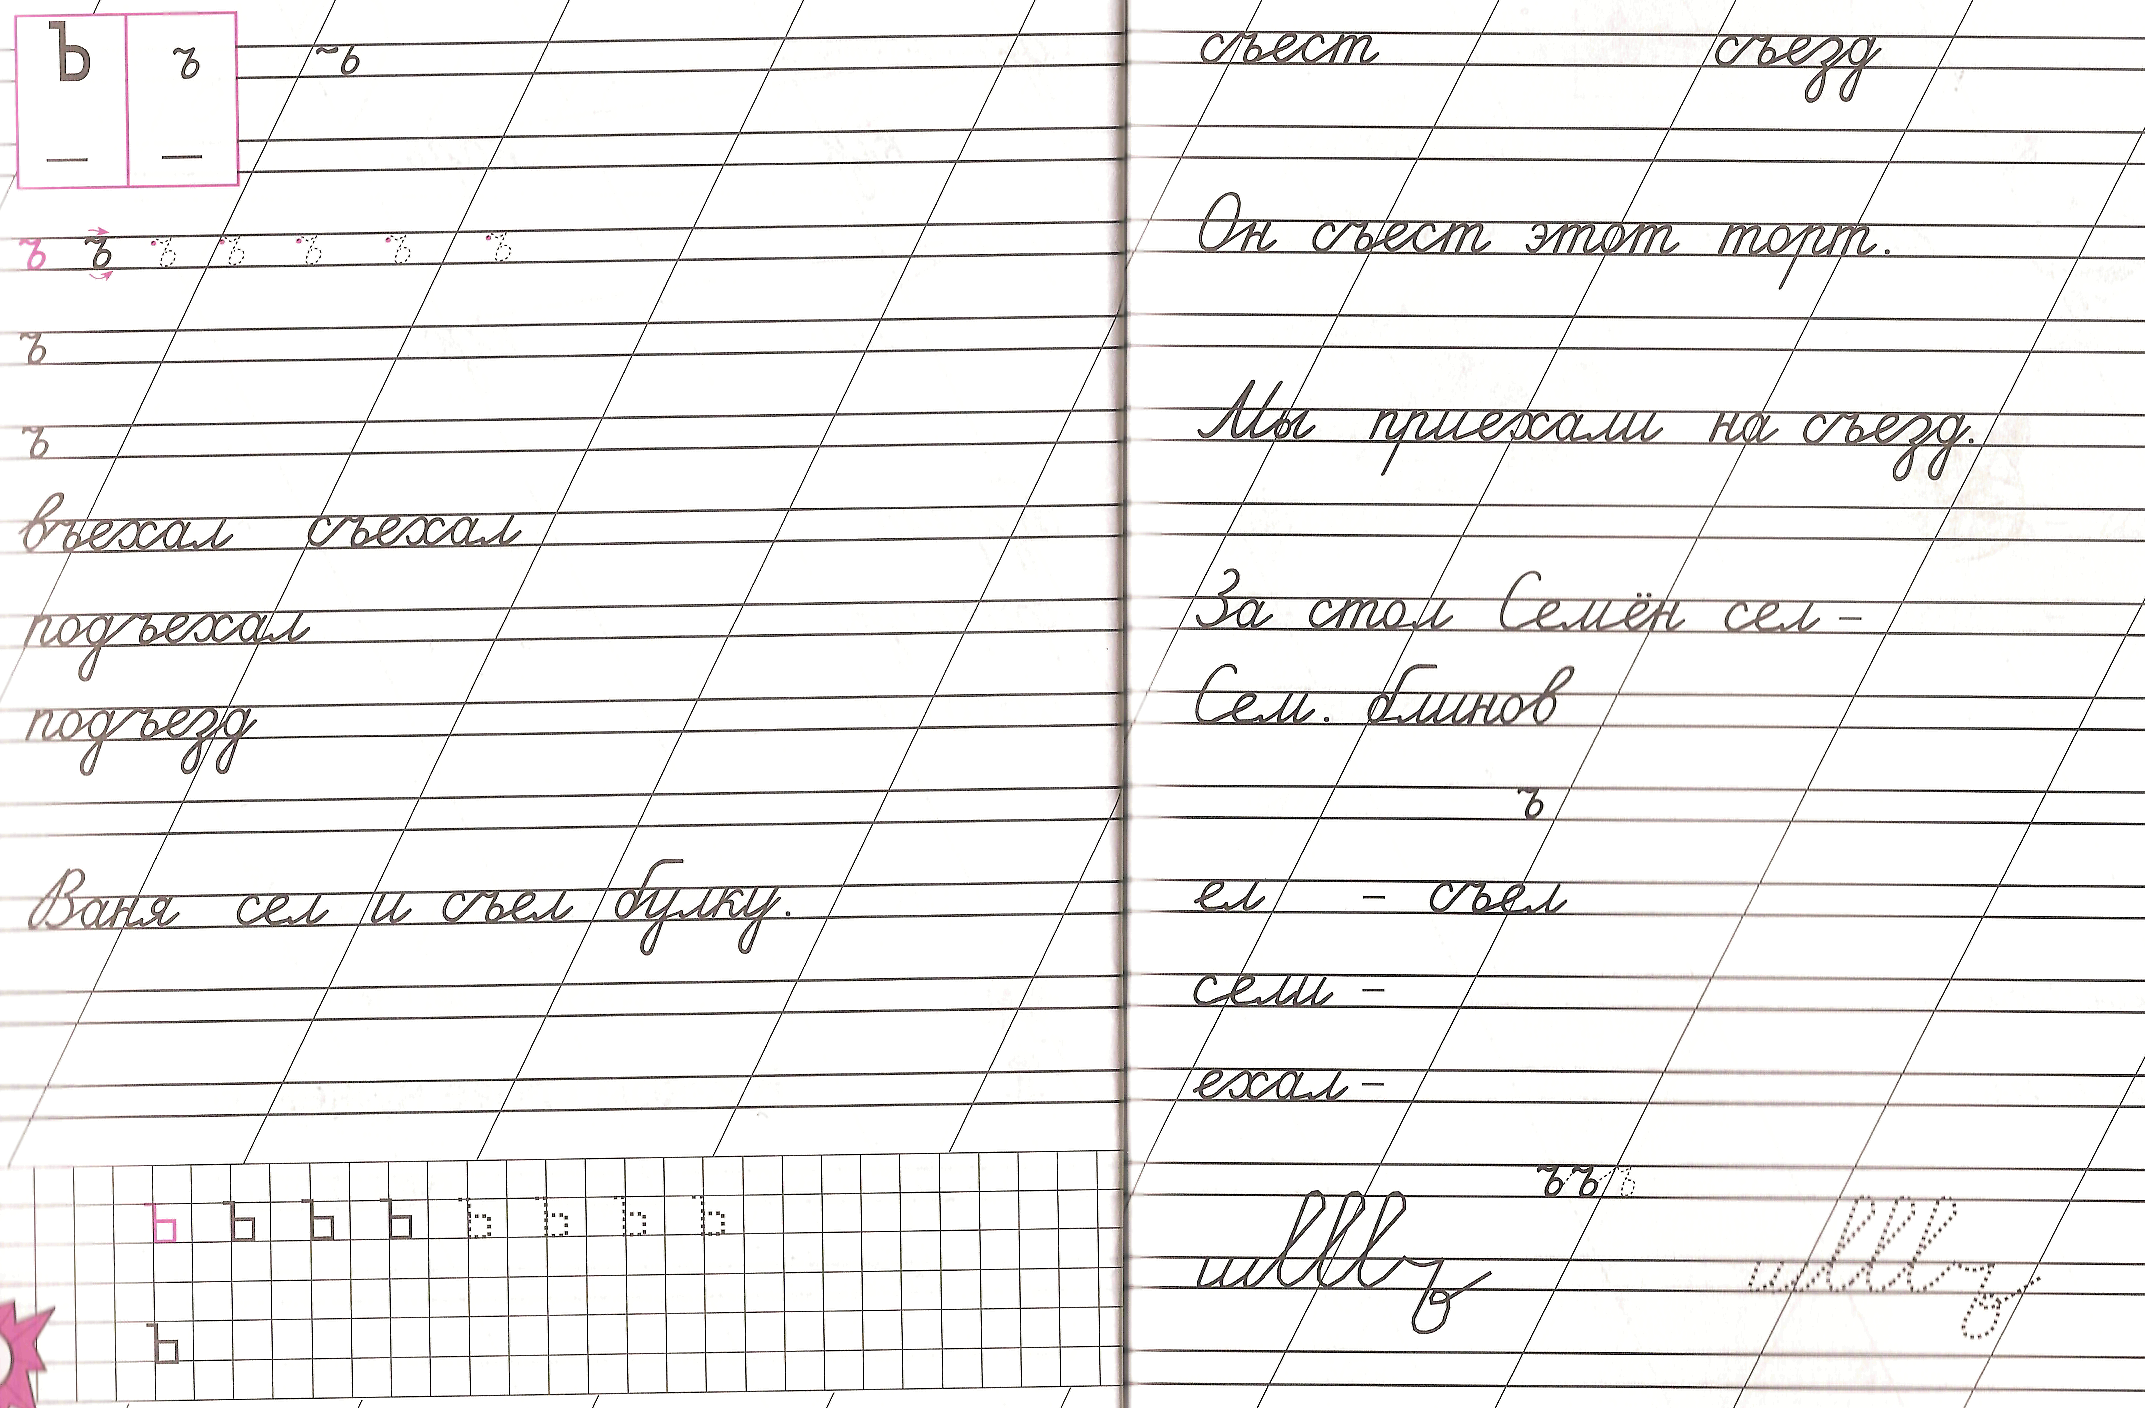 Ъ ъ ъ
— —
ъ ъ ъ ъ ъ ъ ъ
ъ
ъ
въехал съехал
подъехал
подъезд
Ваня сел и съел булку.
Ъ Ъ Ъ Ъ Ъ Ъ Ъ Ъ
Ъ
съест съезд
Он съест этот торт.
Мы приехали на съезд.
За стол Семён сел –
Сем. блинов
ъ
ел – съел
сели –
ехал –
ъ ъ ъ